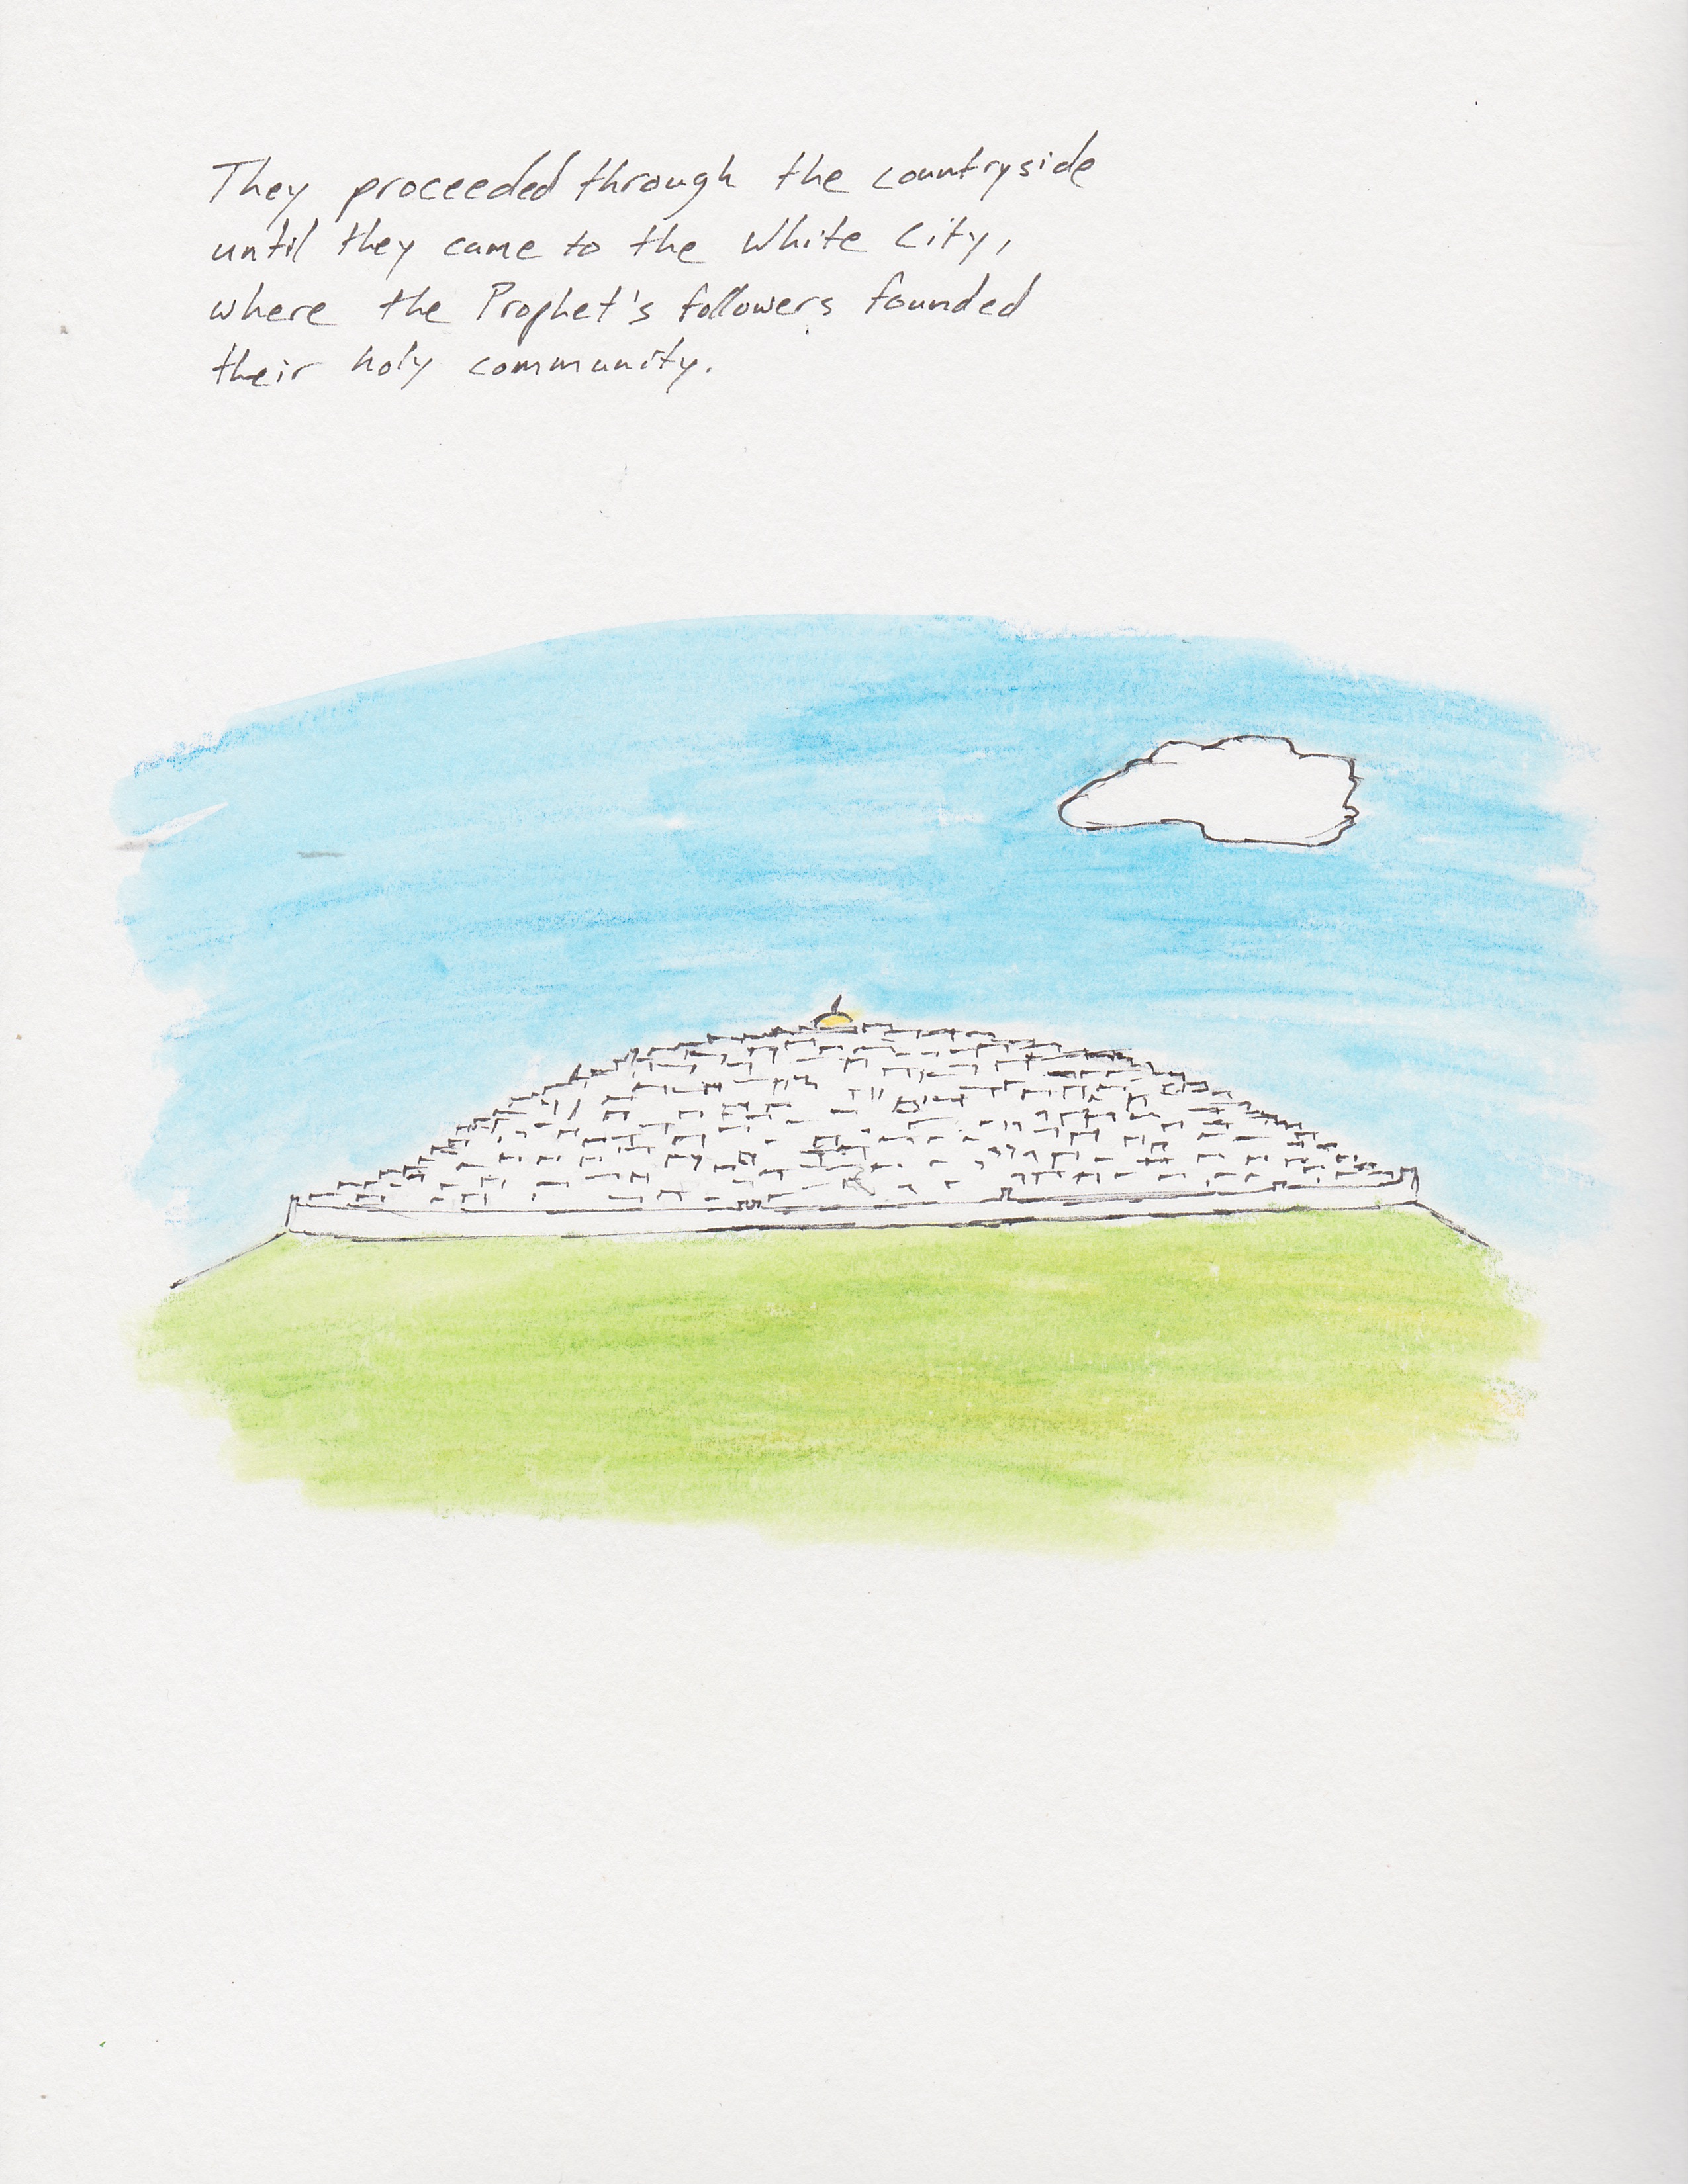 They proceeded through the countryside
until they came to the White City,
where the Prophet's followers founded
their holy community.